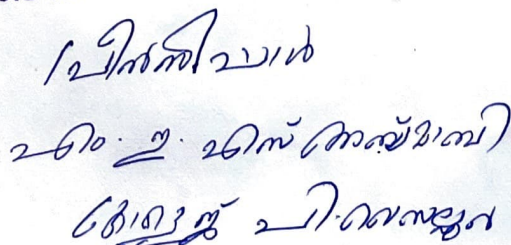 പ്രിൻസിപ്പാൾ
എം. ഇ. എസ് അസ്മാബി
കോളേജ് പി. വെമ്പല്ലൂർ